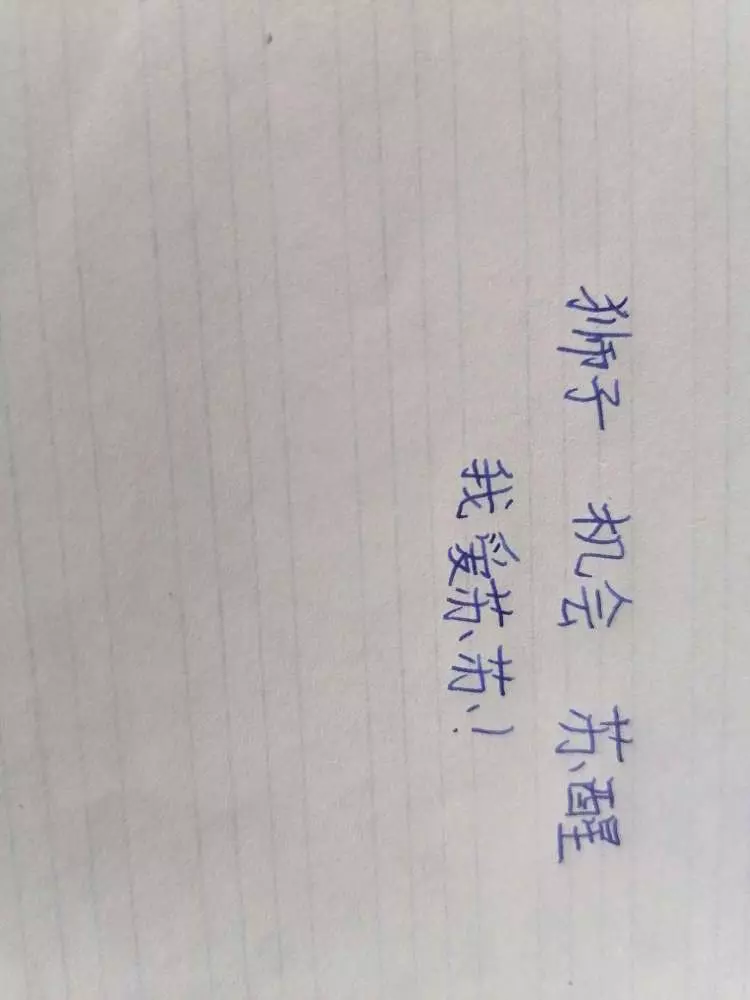 狮子 机会 苏醒
我爱苏苏!